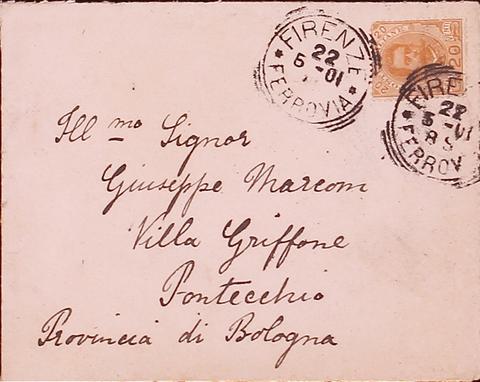 FIRENZE
22
5-01
* FERROVIA *
20 20
20
FIRE
22
5-01
8 S
* FERROV
Ill mo Signor
Giuseppe Marconi
Villa Griffone
Pontecchio
Provincia di Bologna